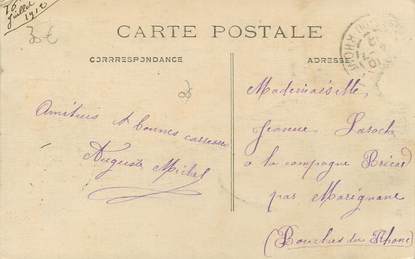 26
Juillet 1912
35€
CARTE POSTALE
CORRRESPONDANCE
ADRESSE
Amitiés & bonnes caresses
Auguste Michel
Mademoiselle
Jeanne
à la campagne Ricard
par Marignane
(Bouches du Rhône)